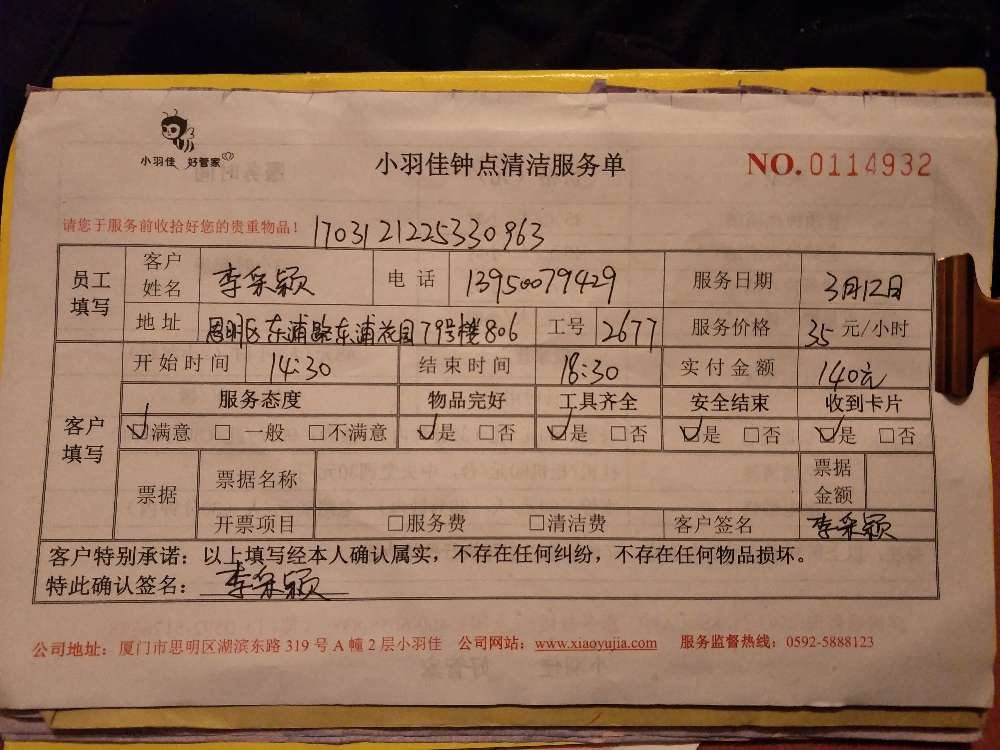 小羽佳 好管家
小羽佳钟点清洁服务单
NO.0114932
请您于服务前收拾好您的贵重物品！ 1703121225330963
员工填写 客户姓名 李采颖 电话 13950079429 服务日期 3月12日
地址 思明区东浦路东浦花园79号楼806 工号 2677 服务价格 35元/小时
客户填写 开始时间 14:30 结束时间 18:30 实付金额 140元
服务态度 物品完好 工具齐全 安全结束 收到卡片
☑满意 □一般 □不满意 ☑是 □否 ☑是 □否 ☑是 □否 ☑是 □否
票据 票据名称 票据金额
开票项目 □服务费 □清洁费 客户签名 李采颖
客户特别承诺：以上填写经本人确认属实，不存在任何纠纷，不存在任何物品损坏。
特此确认签名：李采颖
公司地址：厦门市思明区湖滨东路319号A幢2层小羽佳 公司网站：www.xiaoyujia.com 服务监督热线：0592-5888123